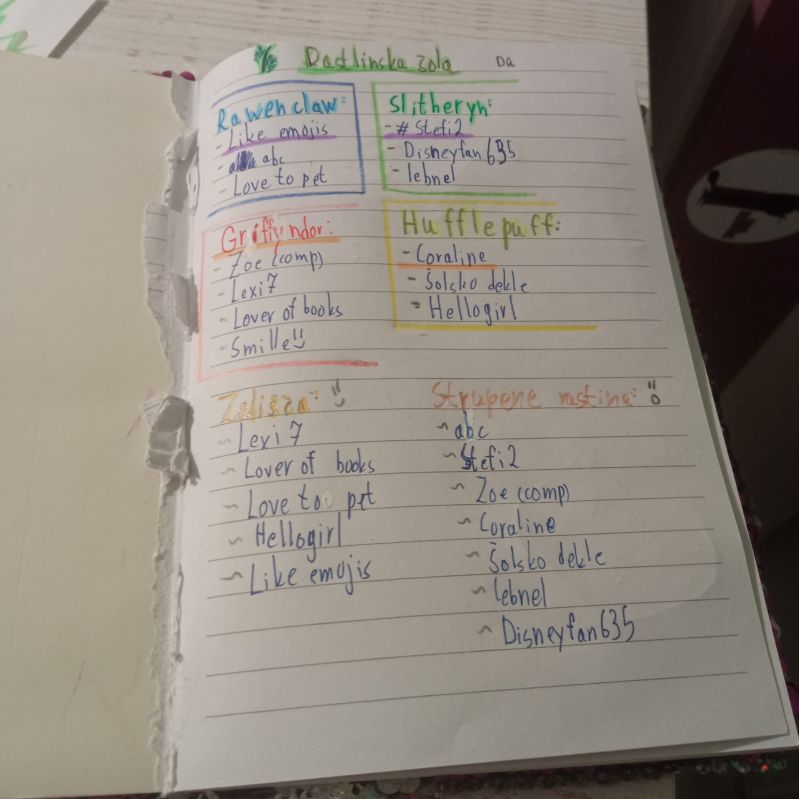 Rastlinska zola DA
Rawenclaw:
- Like emojis
- abc
- Love to pet
Slitheryn:
- # Stefi2
- Disneyfan635
- lebnel
Griffyndor:
- Zoe (comp)
- Lexi7
- Lover of books
- Smille!!
Hufflepuff:
- Coraline
- Šolsko dekle
- Hellogirl
Zelišča:
~ Lexi7
~ Lover of books
~ Love to pet
~ Hellogirl
~ Like emojis
Strupene rastline:
~ abc
~ Stefi2
~ Zoe (comp)
~ Coraline
~ Šolsko dekle
~ lebnel
~ Disneyfan635